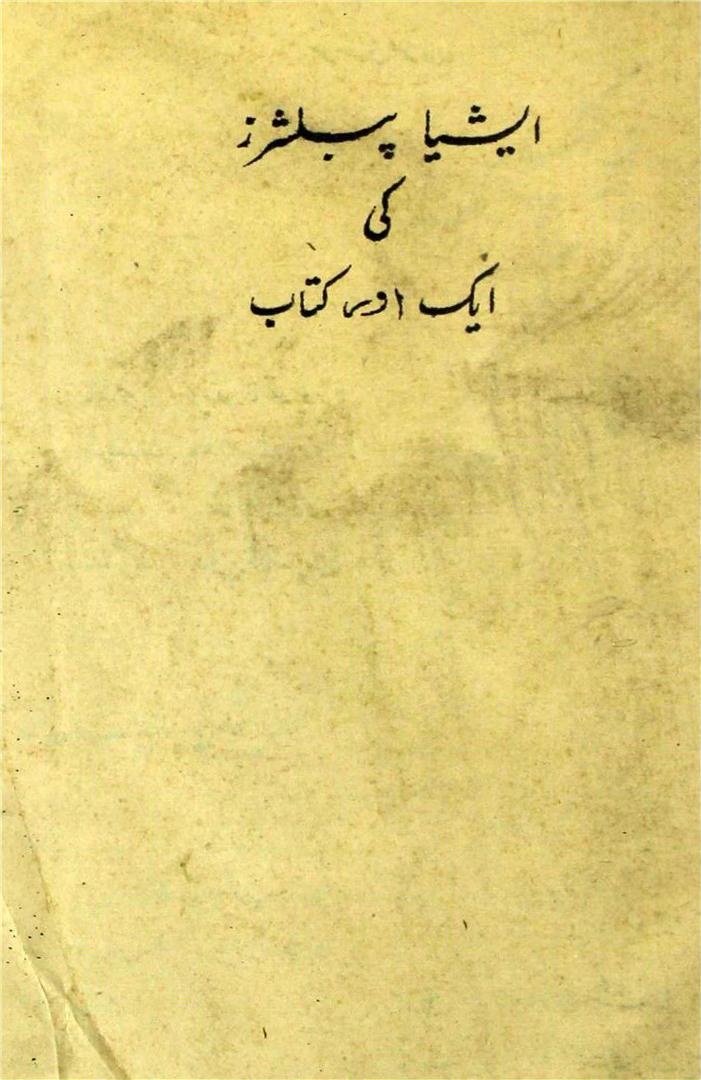 ایشیا پبلشرز
کی
ایک اور کتاب